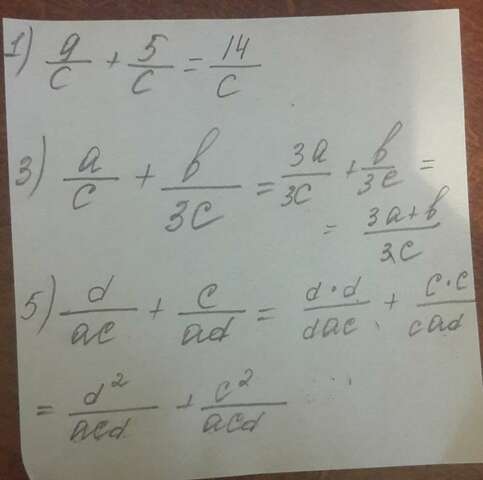 1) 9/c + 5/c = 14/c
3) a/c + b/3c = 3a/3c + b/3c =
= 3a+b/3c
5) d/ac + c/ad = d·d/dac + c·c/cad
= d²/acd + c²/acd